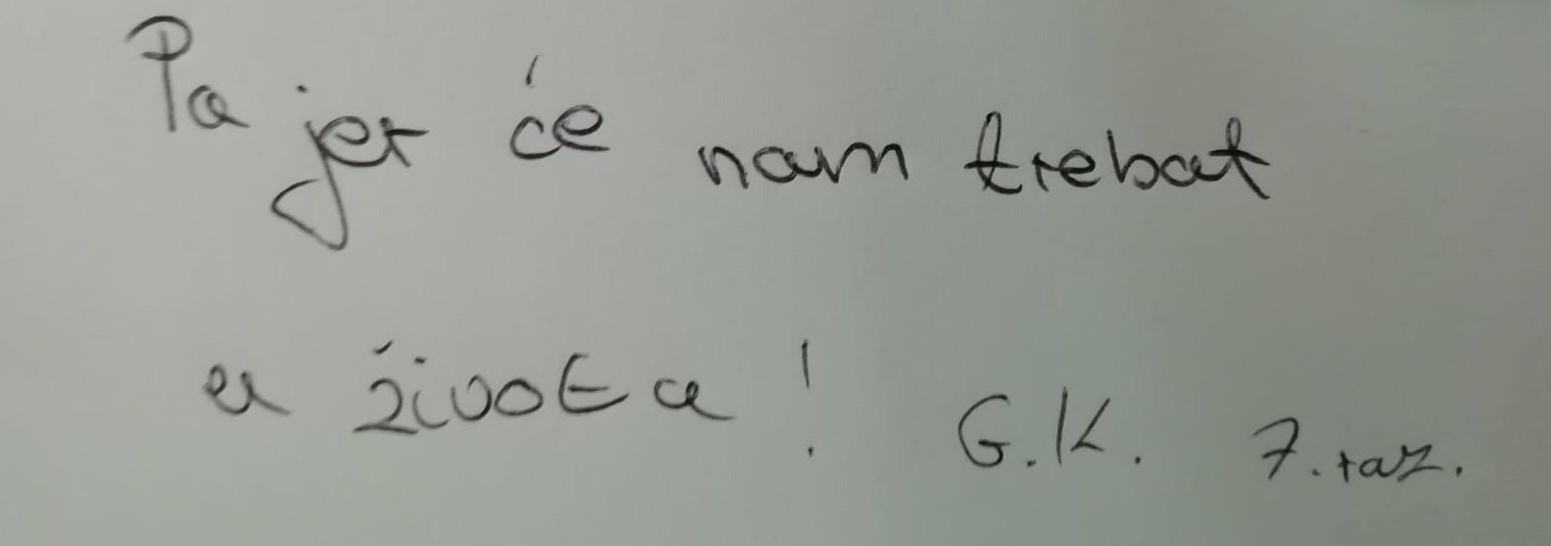 Pa jer će nam trebat
u životu! G.K. 7.raz.